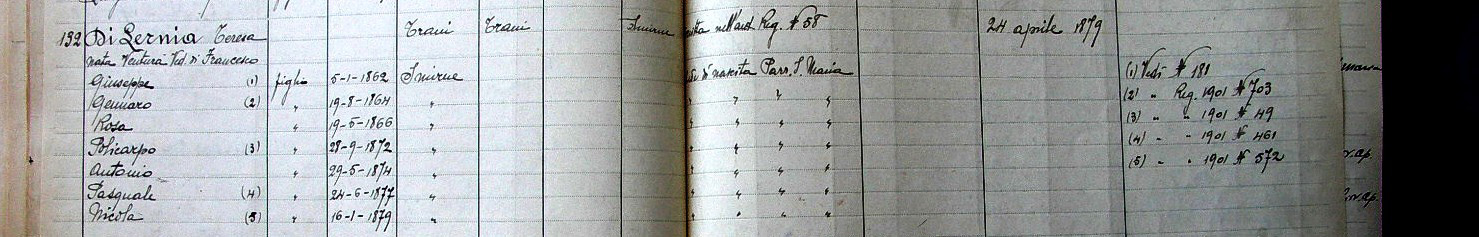 132 Di Lernia Teresa Trani Trani Smirne nell'ant Reg. № 58 24 aprile 1879
nata Ventura Ved. di Francesco
Giuseppe (1) figlio 5-1-1862 Smirne di nascita Parr. S. Maria (1) Vedi № 181
Gennaro (2) " 19-8-1864 " " " " " (2) " Reg. 1901 № 703
Rosa " 19-5-1866 " " " " " (3) " " 1901 № 49
Policarpo (3) " 28-9-1872 " " " " " (4) " " 1901 № 461
Antonio " 29-5-1874 " " " " " (5) " " 1901 № 572
Pasquale (4) " 24-6-1877 " " " " "
Nicola (5) " 16-1-1879 " " " " "